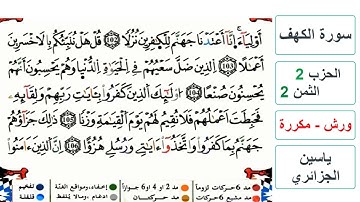 أَوْلِيَآءَ إِنَّآ أَعْتَدْنَا جَهَنَّمَ لِلْكٰفِرِينَ نُزُلًا 102 قُلْ هَلْ نُنَبِّئُكُم بِالَاخْسَرِينَ
أَعْمَٰلًا 103 اَلذِينَ ضَلَّ سَعْيُهُمْ فِي اِلْحَيَوٰةِ اِلدُّنْيَا وَهُمْ يَحْسِبُونَ أَنَّهُمْ
يُحْسِنُونَ صُنْعًا أُوْلَٰٓئِكَ اَلذِينَ كَفَرُواْ بِـَٔايَٰتِ رَبِّهِمْ وَلِقَآئِهِۦ
فَحَبِطَتَ اَعْمَٰلُهُمْ فَلَا نُقِيمُ لَهُمْ يَوْمَ اَلْقِيَٰمَةِ وَزْنًا ذَٰلِكَ جَزَآؤُهُمْ
جَهَنَّمُ بِمَا كَفَرُواْ وَاتَّخَذُوٓاْ ءَايَٰتِے وَرُسُلِے هُزُؤًا 106 إِنَّ اَلذِينَ ءَامَنُواْ
سورة الكهف
الحزب 2
الثمن 2
ورش - مكررة
ياسين
الجزائري
مد 6 حركات لزوماً
مد 2 او 4 او 6 جوازاً
إخفاء، ومواقع الغنّة
تفخيم
مد مشبع 6 حركات
مد حركتان
إدغام، ومالا يُلفظ
قلقلة